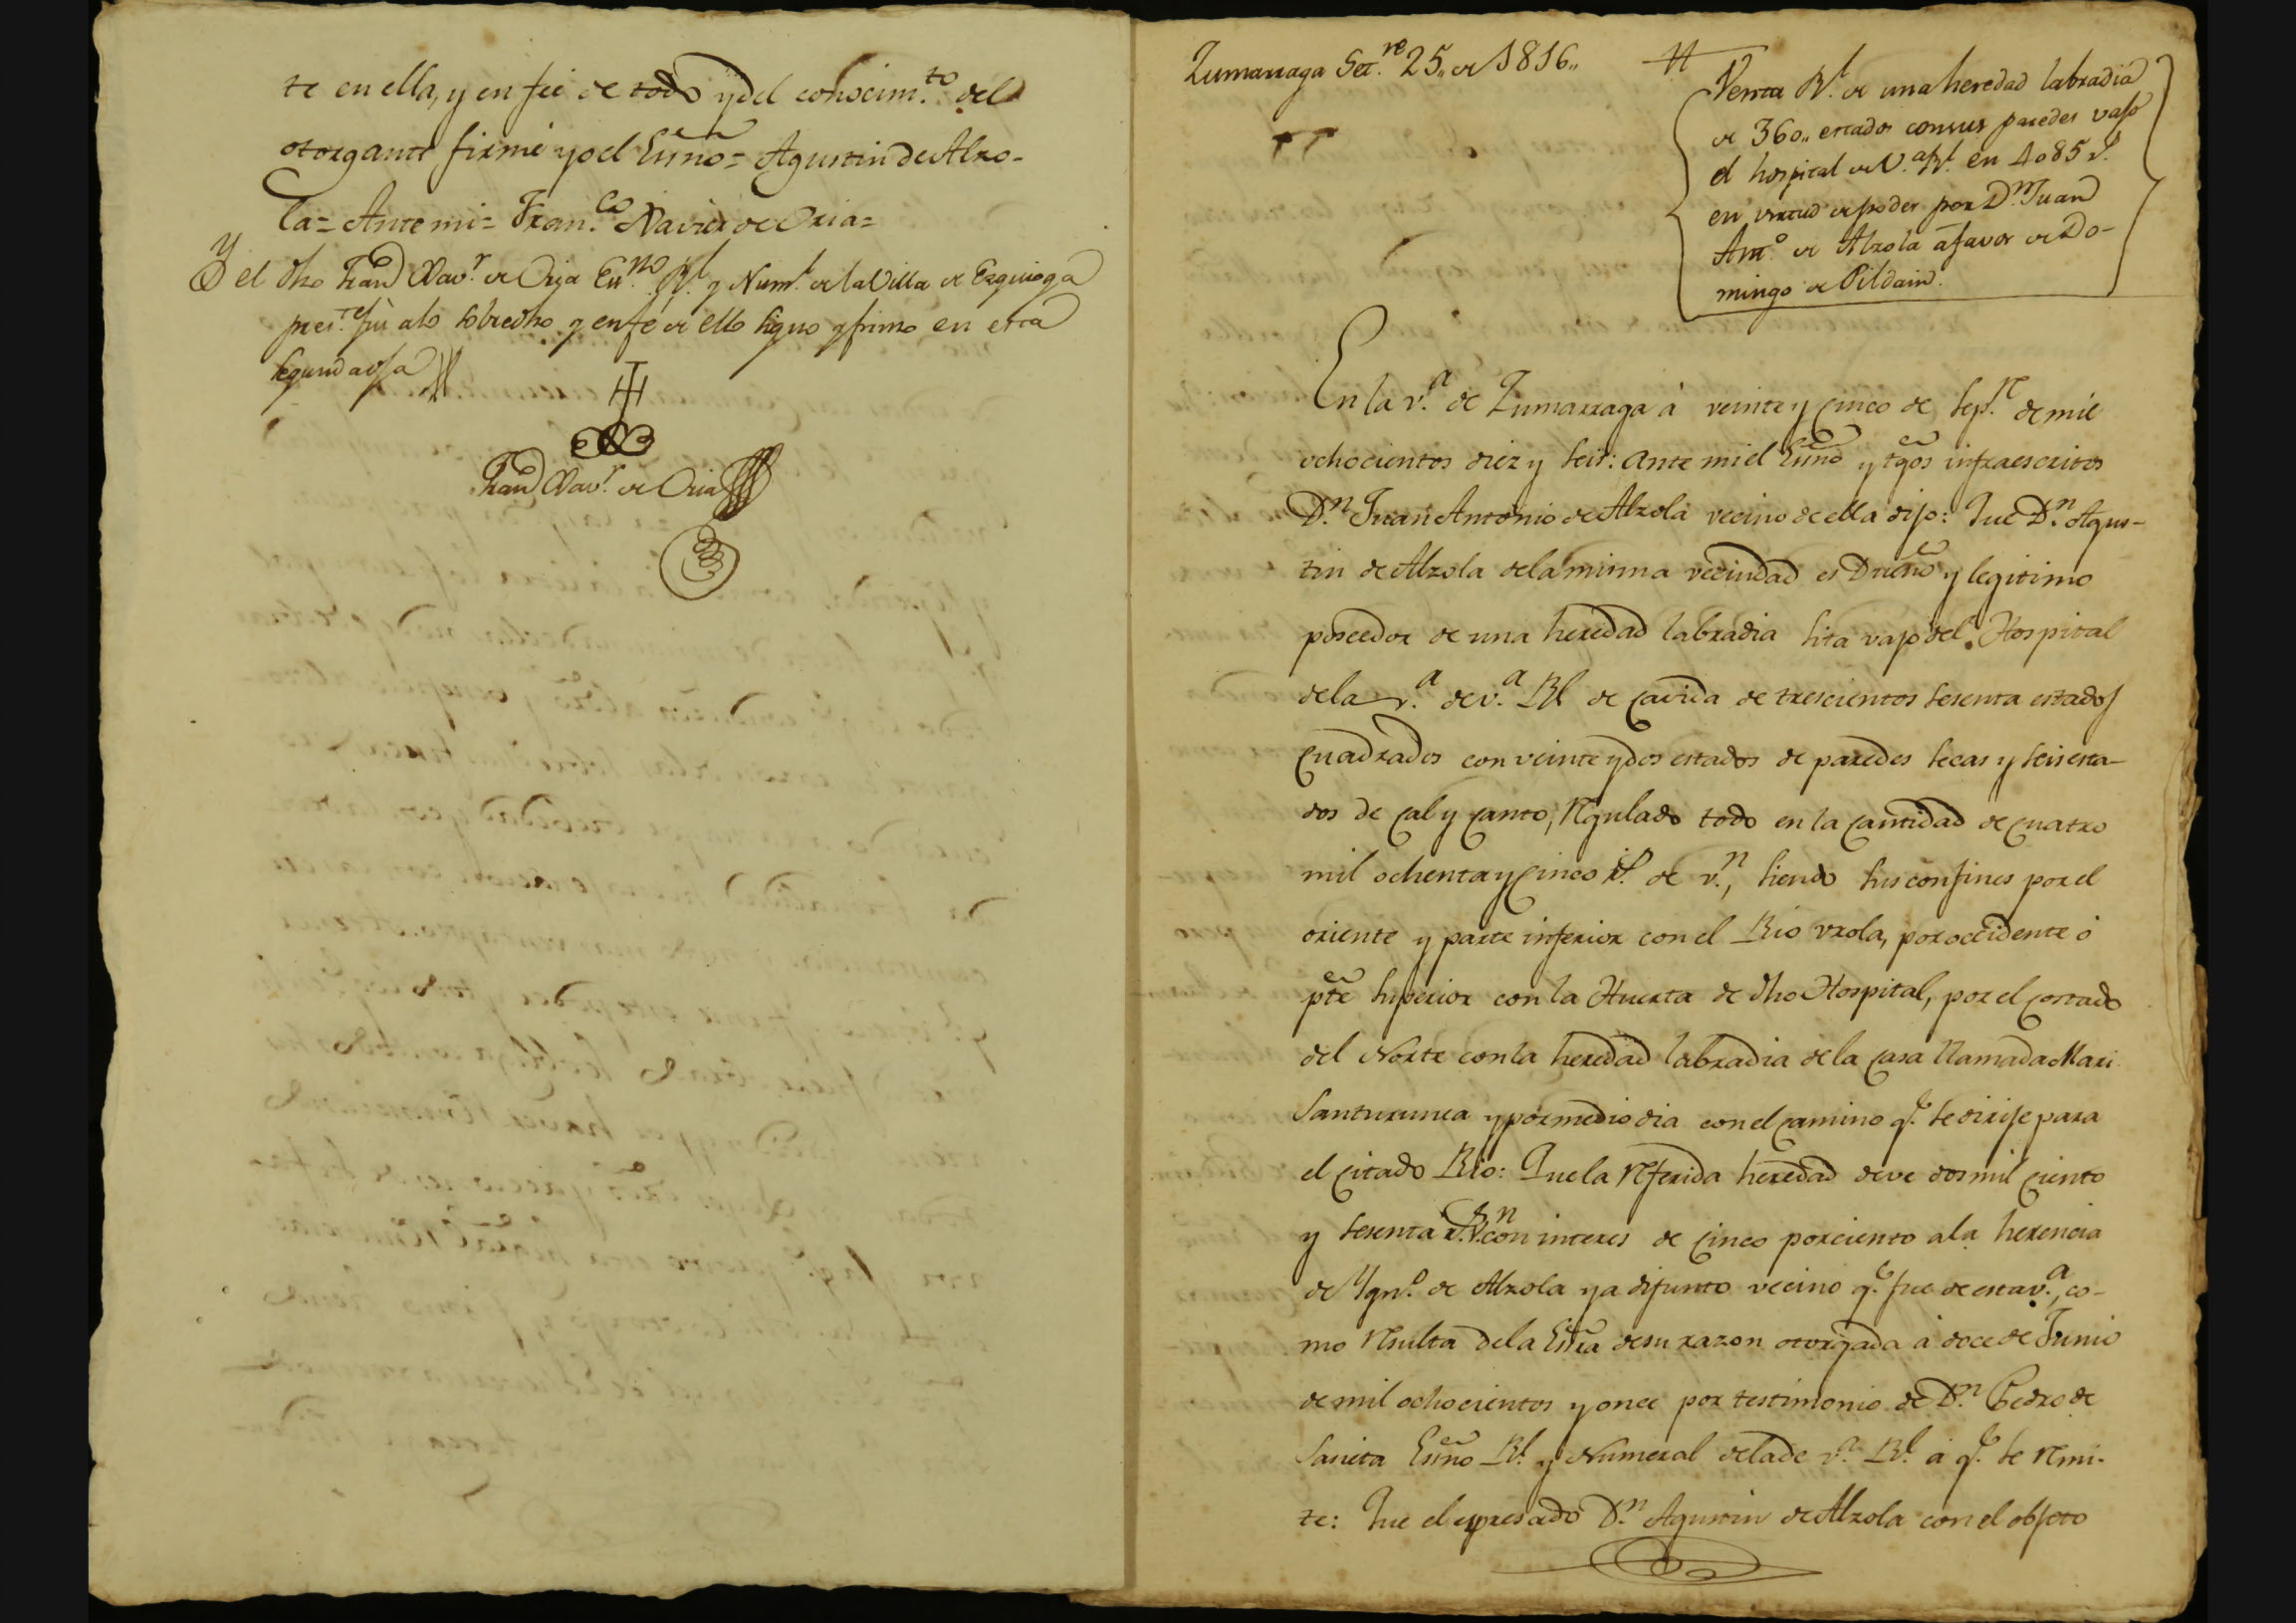 te en ella, y en feé de todo y del conocim.to del
otorgante firmé yo el Essno = Agustin de Alzo-
la = Ante mi = Fran.co Xavier de Oria =
Y el dho Fran.co Xav.r de Oria Es.no Rl. y Num.l de la Villa de Ezquioga
pres.te fui a lo sobredho y en fe de ello signo y firmo en esta
segunda oja
Fran.co Xav.r de Oria
Zumarraga Set.re 25,, de 1816,,
Venta Rl. de una heredad labradia
de 360,, estados con sus paredes vajo
el hospital de V.a Rl. en 4085 rs.
en virtud de poder por D.n Juan
Ant.o de Alzola a favor de Do-
mingo de Pildain.
En la v.a de Zumarraga à veinte y cinco de Sep.re de mil
ochocientos diez y seis: ante mi el Essno y tgos infraescritos
D.n Juan Antonio de Alzola vecino de ella dijo: Que D.n Agus-
tin de Alzola de la misma vecindad es Dueño y legitimo
poseedor de una heredad labradia sita vajo del Hospital
de la v.a de V.a Rl de cavida de trescientos sesenta estados
cuadrados con veinte y dos estados de paredes secas y seis esta-
dos de cal y canto, regulado todo en la cantidad de cuatro
mil ochenta y cinco rs. de v.n, siendo sus confines por el
oriente y parte inferior con el Rio Vrola, por occidente ó
pte superior con la Huerta de dho Hospital, por el costado
del Norte con la heredad labradia de la casa llamada Mari
Santurunea y por mediodia con el camino q.e se dirije para
el citado Rio: Que la referida heredad deve dos mil ciento
y sesenta rs. v.n con interes de cinco por ciento a la herencia
de Ygn.o de Alzola ya difunto vecino q.e fue de esta v.a, co-
mo resulta de la Essra de su razon otorgada à doce de Junio
de mil ochocientos y once por testimonio de D.n Pedro de
Essno Rl. y Numeral de la de V.a Rl. à q.e se remi-
te: Que el espresado D.n Agustin de Alzola con el objeto